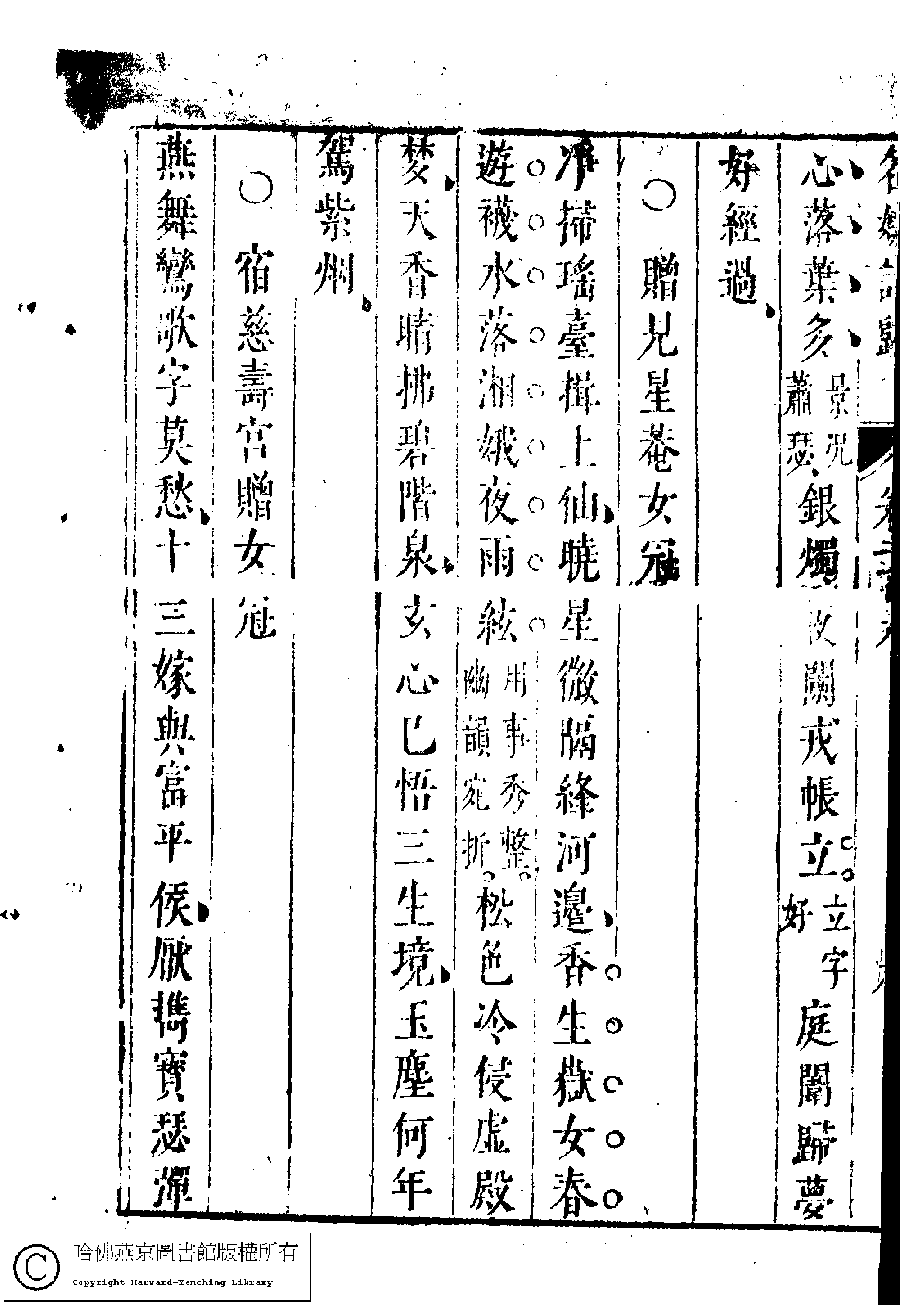 名媛詩歸 卷二
心落葉多景況蕭瑟銀燭夜闌戎帳立立字好庭闈歸夢
好經過
○贈見星菴女冠
淨掃瑤臺揖上仙曉星微隔絳河邊香生嶽女春
遊襪水落湘娥夜雨絃用事秀整幽韻宛折松色冷侵虛殿
焚天香晴拂碧階泉玄心已悟三生境玉塵何年
駕紫烟
○宿慈壽宮贈女冠
燕舞鸞歌字莫愁十三嫁與富平侯厭攜寶瑟彈
哈佛燕京圖書館版權所有
Copyright Harvard-Yenching Library